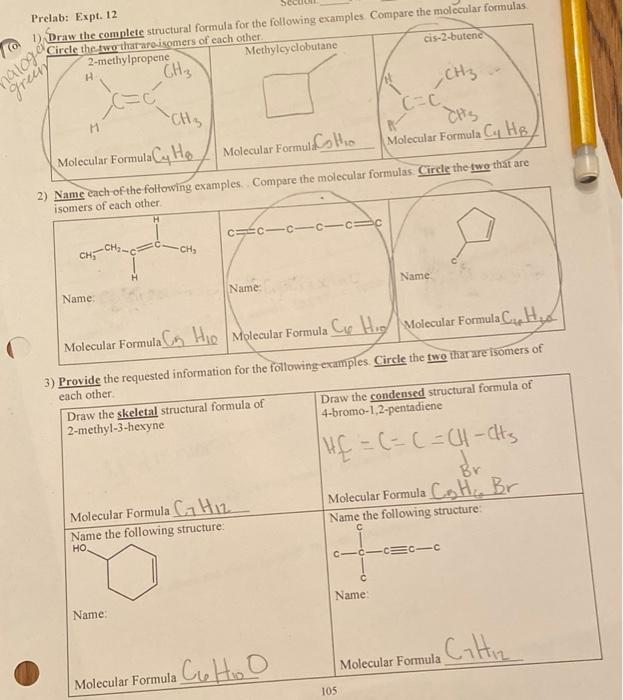 Prelab: Expt. 12
1) Draw the complete structural formula for the following examples. Compare the molecular formulas.
Circle the two that are isomers of each other.
halogen
green
2-methylpropene
Methylcyclobutane
cis-2-butene
H CH3
C=C
H CH3
H CH3
C=C
H CH3
Molecular Formula C4H8
Molecular Formula C5H10
Molecular Formula C4H8
2) Name each of the following examples. Compare the molecular formulas. Circle the two that are
isomers of each other.
H
CH3-CH2-C=C-CH3
H
C=C-C-C-C=C
C
Name:
Name:
Name:
Molecular Formula C5 H10
Molecular Formula C6 H10
Molecular Formula C6 H10
3) Provide the requested information for the following examples. Circle the two that are isomers of
each other.
Draw the skeletal structural formula of
2-methyl-3-hexyne
Draw the condensed structural formula of
4-bromo-1,2-pentadiene
=C=C=CH-CH3
Br
Molecular Formula C7H12
Molecular Formula C5H6Br
Name the following structure:
HO
Name the following structure:
C
C-C-C≡C-C
C
Name:
Name:
Molecular Formula C6H10O
Molecular Formula C7H12
105